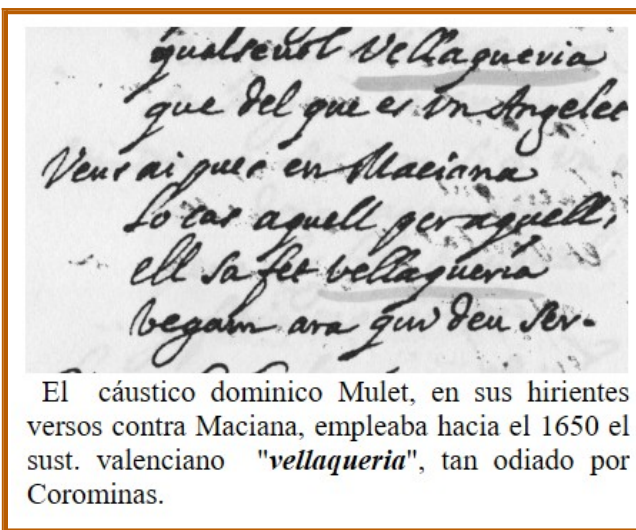 qualsevol Vellaqueria
que del que es vn Angelet
Veus ai que en Maciana
Lo cas aquell per aquell,
ell sa fet vellaqueria
begam ara quin deu ser.
El cáustico dominico Mulet, en sus hirientes
versos contra Maciana, empleaba hacia el 1650 el
sust. valenciano "vellaqueria", tan odiado por
Corominas.